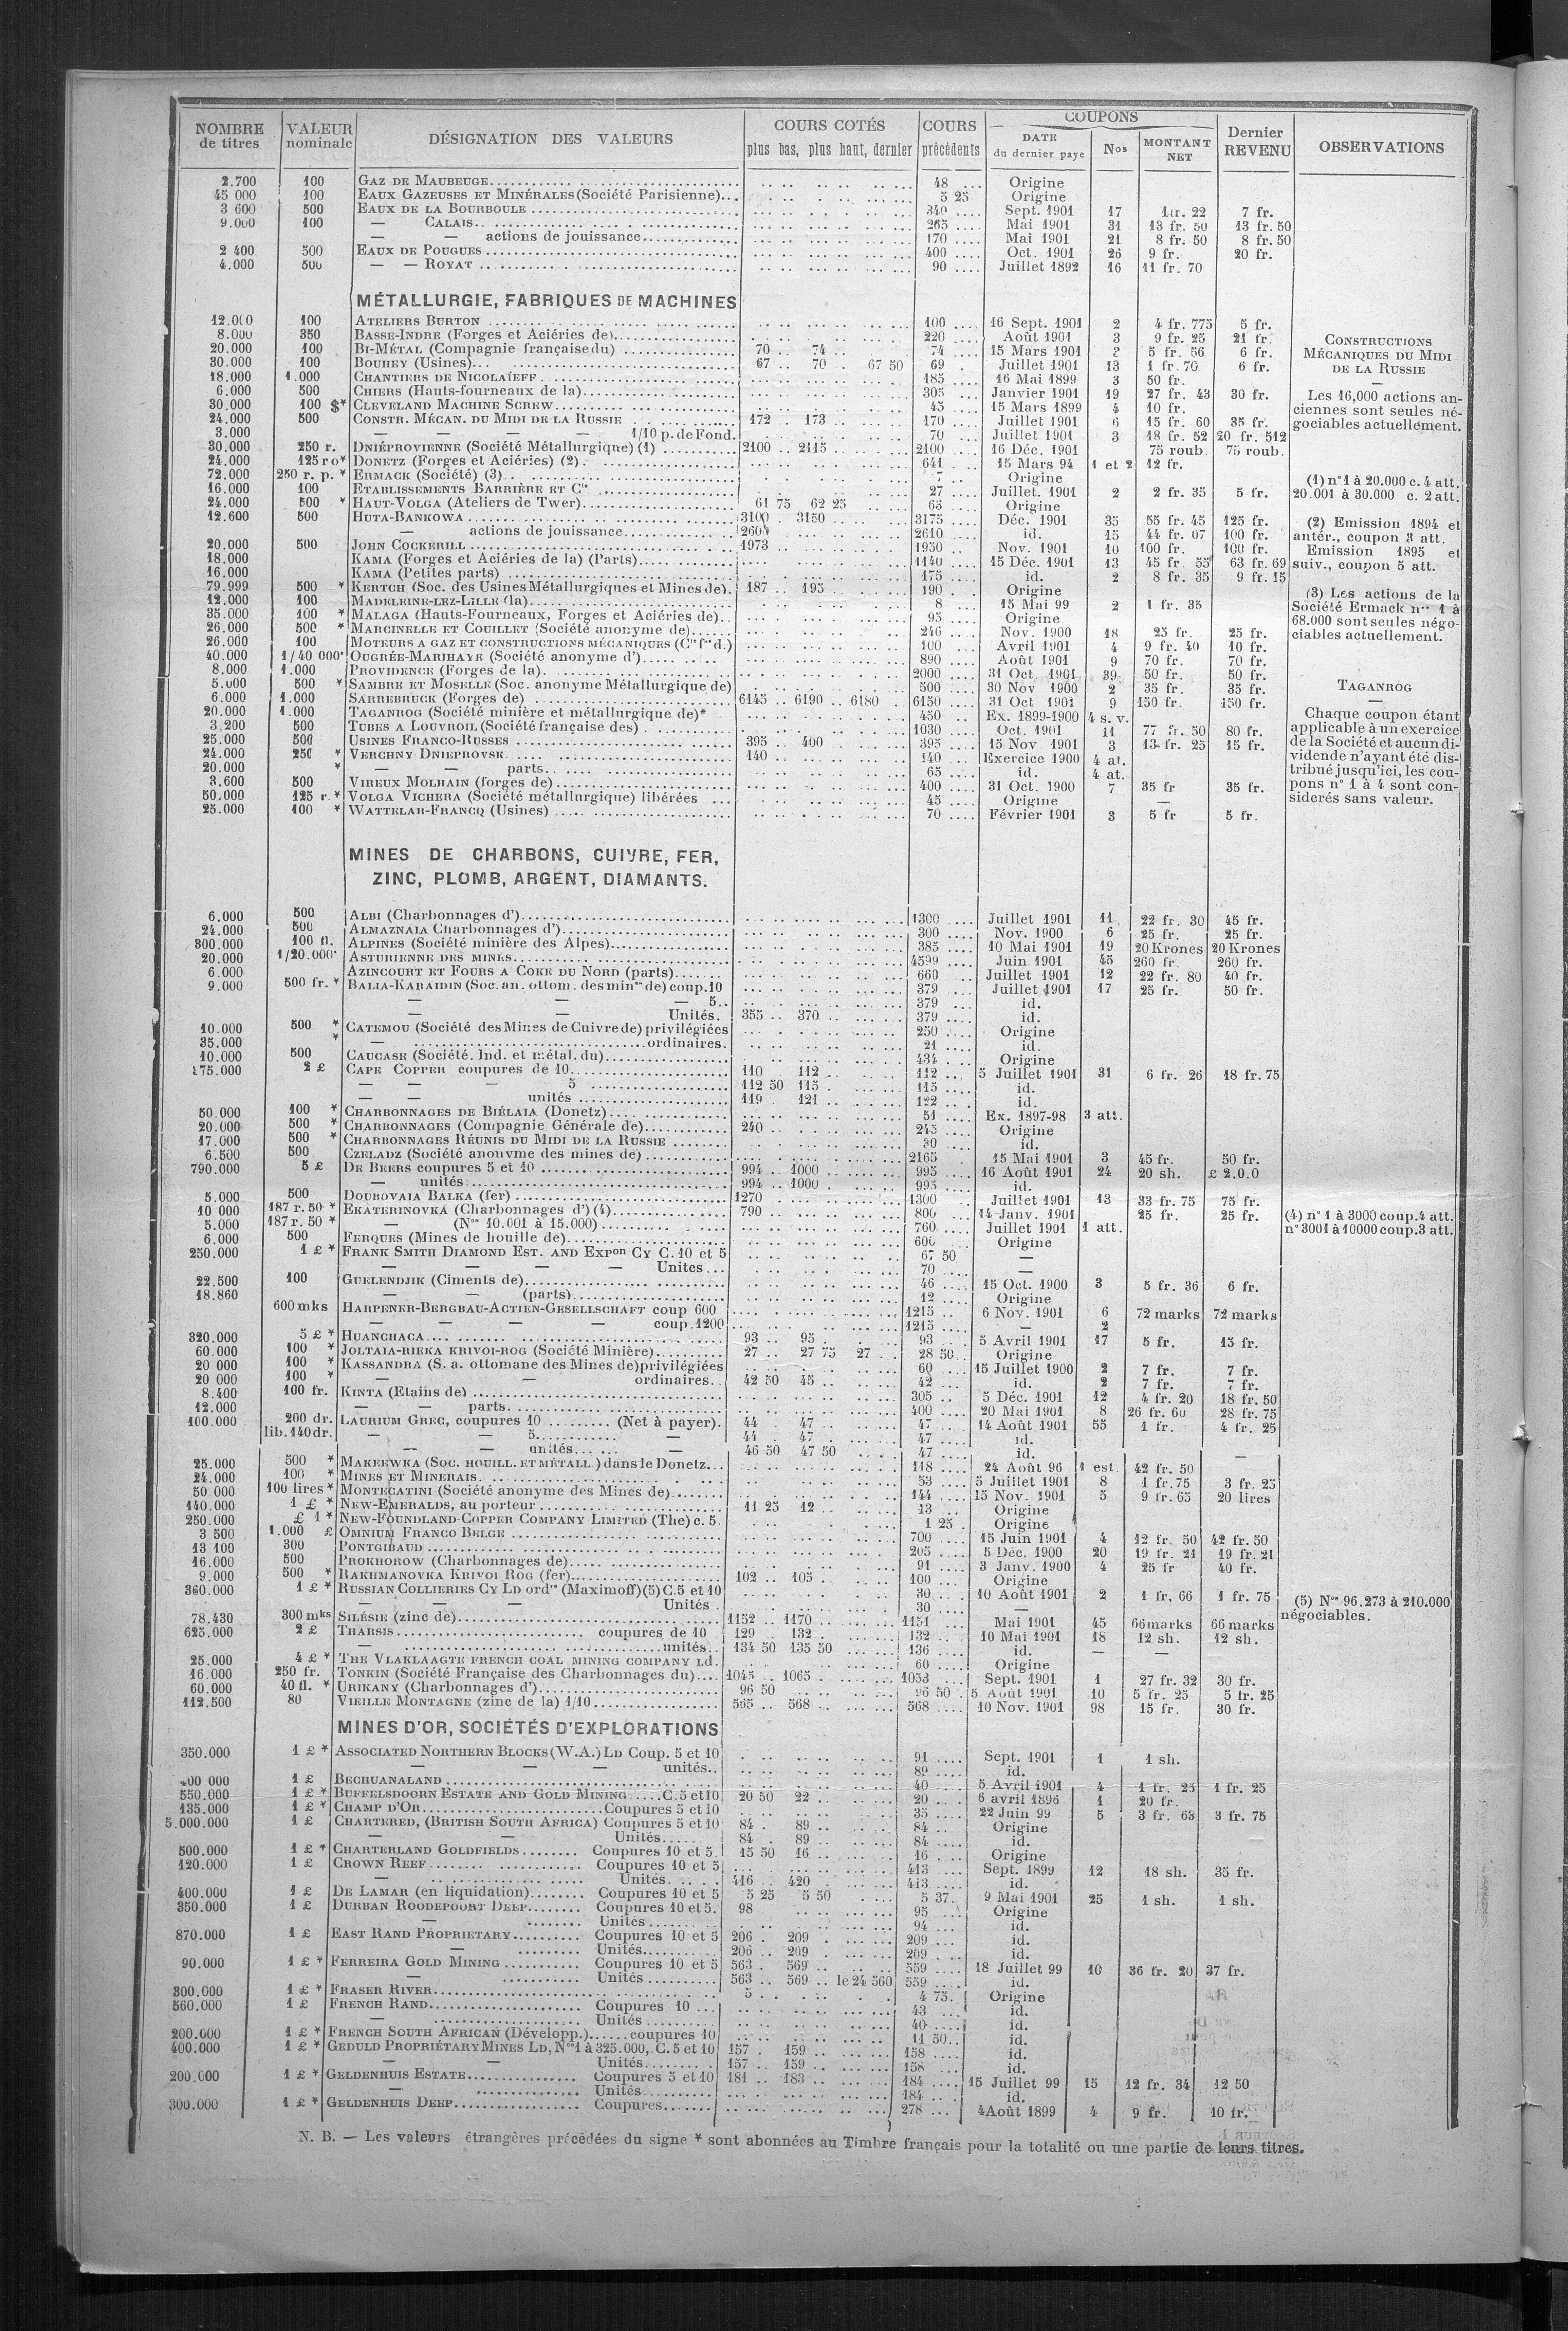 NOMBRE de titres | VALEUR nominale | DÉSIGNATION DES VALEURS | COURS COTÉS plus bas, plus haut, dernier | COURS précédents | COUPONS DATE du dernier paye | Nos | MONTANT NET | Dernier REVENU | OBSERVATIONS
2.700 100 GAZ DE MAUBEUGE 48 Origine
45 000 100 EAUX GAZEUSES ET MINÉRALES (Société Parisienne) 5 25 Origine
3 600 500 EAUX DE LA BOURBOULE 340 Sept. 1901 17 22 7 fr.
9.000 100 — CALAIS 265 Mai 1901 31 13 fr. 50 13 fr. 50
— — actions de jouissance 170 Mai 1901 21 8 fr. 50 8 fr. 50
2 400 500 EAUX DE POUGUES 400 Oct. 1901 26 9 fr. 20 fr.
4.000 500 — — ROYAT 90 Juillet 1892 16 11 fr. 70
MÉTALLURGIE, FABRIQUES DE MACHINES
12.000 100 ATELIERS BURTON 100 16 Sept. 1901 2 4 fr. 775 5 fr.
8.000 350 BASSE-INDRE (Forges et Aciéries de) 220 Août 1901 3 9 fr. 25 21 fr.
20.000 100 BI-MÉTAL (Compagnie française du) 70 74 74 15 Mars 1901 5 fr. 56 6 fr.
30.000 100 BOUHEY (Usines) 67 70 67 50 69 Juillet 1901 13 1 fr. 70 6 fr.
18.000 1.000 CHANTIERS DE NICOLAÏEFF 185 16 Mai 1899 3 50 fr.
6.000 500 CHIERS (Hauts-fourneaux de la) 305 Janvier 1901 19 27 fr. 43 30 fr.
30.000 100 $* CLEVELAND MACHINE SCREW 45 15 Mars 1899 4 10 fr.
24.000 500 CONSTR. MÉCAN. DU MIDI DE LA RUSSIE 172 173 170 Juillet 1901 6 15 fr. 60 35 fr.
3.000 — — — — 1/10 p. de Fond. 70 Juillet 1901 3 18 fr. 52 20 fr. 512
30.000 250 r. DNIÉPROVIENNE (Société Métallurgique) (1) 2100 2115 2100 16 Déc. 1901 75 roub. 75 roub.
24.000 125 ro* DONETZ (Forges et Aciéries) (2) 641 15 Mars 94 1 et 2 12 fr.
72.000 250 r. p. * ERMACK (Société) (3) 7 Origine
16.000 100 ETABLISSEMENTS BARRIÈRE ET Cie 27 Juillet. 1901 2 2 fr. 35 5 fr.
24.000 500 * HAUT-VOLGA (Ateliers de Twer) 61 75 62 25 63 Origine
12.600 500 HUTA-BANKOWA 3100 3150 3175 Déc. 1901 35 55 fr. 45 125 fr.
— actions de jouissance 2600 2610 id. 15 44 fr. 07 100 fr.
20.000 500 JOHN COCKERILL 1973 1950 Nov. 1901 10 100 fr. 100 fr.
18.000 KAMA (Forges et Aciéries de la) (Parts) 1140 15 Déc. 1901 13 45 fr. 55 63 fr. 69
16.000 KAMA (Petites parts) 175 id. 2 8 fr. 35 9 fr. 15
79.999 500 * KERTCH (Soc. des Usines Métallurgiques et Mines de) 187 195 190 Origine
12.000 100 MADELEINE-LEZ-LILLE (la) 8 15 Mai 99 2 1 fr. 35
35.000 100 * MALAGA (Hauts-Fourneaux, Forges et Aciéries de) 95 Origine
26.000 500 * MARCINELLE ET COUILLET (Société anonyme de) 246 Nov. 1900 18 25 fr. 25 fr.
26.000 100 MOTEURS A GAZ ET CONSTRUCTIONS MÉCANIQUES (Cie fse d.) 100 Avril 1901 4 9 fr. 40 10 fr.
40.000 1/40 000e OUGRÉE-MARIHAYE (Société anonyme d') 890 Août 1901 9 70 fr. 70 fr.
8.000 1.000 PROVIDENCE (Forges de la) 2000 31 Oct. 1901 39 50 fr. 50 fr.
5.000 500 * SAMBRE ET MOSELLE (Soc. anonyme Métallurgique de) 500 30 Nov 1900 2 35 fr. 35 fr.
6.000 1.000 SARREBRUCK (Forges de) 6145 6190 6180 6150 31 Oct 1901 9 150 fr. 150 fr.
20.000 1.000 TAGANROG (Société minière et métallurgique de)* 450 Ex. 1899-1900 4 s. v.
3.200 500 TUBES A LOUVROIL (Société française des) 1030 Oct. 1901 11 77 fr. 50 80 fr.
25.000 500 USINES FRANCO-RUSSES 395 400 395 15 Nov 1901 3 13 fr. 25 15 fr.
24.000 250 * VERCHNY DNIEPROVSK 140 140 Exercice 1900 4 at.
20.000 * — parts 65 id. 4 at.
3.600 500 VIREUX MOLHAIN (forges de) 400 31 Oct. 1900 7 35 fr 35 fr.
50.000 125 r. * VOLGA VICHERA (Société métallurgique) libérées 45 Origine —
25.000 100 * WATTELAR-FRANCQ (Usines) 70 Février 1901 3 5 fr 5 fr.
CONSTRUCTIONS
MÉCANIQUES DU MIDI
DE LA RUSSIE
—
Les 16,000 actions an-
ciennes sont seules né-
gociables actuellement.
(1) n° 1 à 20.000 c. 4 att.
20.001 à 30.000 c. 2 att.
(2) Emission 1894 et
antér., coupon 3 att.
Emission 1895 et
suiv., coupon 5 att.
(3) Les actions de la
Société Ermack nos 1 à
68.000 sont seules négo-
ciables actuellement.
TAGANROG
—
Chaque coupon étant
applicable à un exercice
de la Société et aucun di-
vidende n'ayant été dis-
tribué jusqu'ici, les cou-
pons n° 1 à 4 sont con-
siderés sans valeur.
MINES DE CHARBONS, CUIVRE, FER,
ZINC, PLOMB, ARGENT, DIAMANTS.
6.000 500 ALBI (Charbonnages d') 1300 Juillet 1901 11 22 fr. 30 45 fr.
24.000 500 ALMAZNAIA Charbonnages d') 300 Nov. 1900 6 25 fr. 25 fr.
300.000 100 fl. ALPINES (Société minière des Alpes) 385 10 Mai 1901 19 20 Krones 20 Krones
20.000 1/20.000e ASTURIENNE DES MINES 4599 Juin 1901 45 260 fr. 260 fr.
6.000 AZINCOURT ET FOURS A COKE DU NORD (parts) 660 Juillet 1901 12 22 fr. 80 40 fr.
9.000 500 fr. * BALIA-KARAIDIN (Soc. an. ottom. des mines de) coup. 10 379 Juillet 1901 17 25 fr. 50 fr.
— — — 5 379 id.
— — Unités. 355 370 379 id.
10.000 500 * CATEMOU (Société des Mines de Cuivre de) privilégiées 250 Origine
35.000 * — ordinaires. 21 id.
10.000 500 CAUCASE (Société. Ind. et métal. du) 434 Origine
175.000 2 £ CAPE COPPER coupures de 10 110 112 112 5 Juillet 1901 31 6 fr. 26 18 fr. 75
— — — 5 112 50 115 115 id.
— — unités 119 121 122 id.
50.000 100 * CHARBONNAGES DE BIÉLAIA (Donetz) 51 Ex. 1897-98 3 att.
20.000 500 * CHARBONNAGES (Compagnie Générale de) 240 245 Origine
17.000 500 * CHARBONNAGES RÉUNIS DU MIDI DE LA RUSSIE 30 id.
6.500 500 CZELADZ (Société anonyme des mines de) 2165 15 Mai 1901 3 45 fr. 50 fr.
790.000 5 £ DE BEERS coupures 5 et 10 994 1000 995 16 Août 1901 24 20 sh. £ 2.0.0
— unités 994 1000 995 id.
5.000 500 DOUBOVAIA BALKA (fer) 1270 1300 Juillet 1901 13 33 fr. 75 75 fr.
10 000 187 r. 50 * EKATERINOVKA (Charbonnages d') (4) 790 800 14 Janv. 1901 25 fr. 25 fr. (4) n° 1 à 3000 coup. 4 att.
5.000 187 r. 50 * — (Nos 10.001 à 15.000) 760 Juillet 1901 1 att. n° 3001 à 10000 coup. 3 att.
6.000 500 FERQUES (Mines de houille de) 600 Origine
250.000 1 £ * FRANK SMITH DIAMOND EST. AND EXPon CY C. 10 et 5 67 50 —
— — — — Unites 70 —
22.500 100 GUELENDJIK (Ciments de) 46 15 Oct. 1900 3 5 fr. 36 6 fr.
18.860 — — (parts) 12 Origine
600 mks HARPENER-BERGBAU-ACTIEN-GESELLSCHAFT coup 600 1215 6 Nov. 1901 6 72 marks 72 marks
— — — — coup. 1200 1215 — 2
320.000 5 £ * HUANCHACA 93 95 93 5 Avril 1901 17 5 fr. 15 fr.
60.000 100 * JOLTAIA-RIEKA KRIVOI-ROG (Société Minière) 27 27 75 27 28 50 Origine
20 000 100 * KASSANDRA (S. a. ottomane des Mines de) privilégiées 60 15 Juillet 1900 2 7 fr. 7 fr.
20 000 100 * — — ordinaires 42 50 45 42 id. 2 7 fr. 7 fr.
8.400 100 fr. KINTA (Etains de) 305 5 Déc. 1901 12 4 fr. 20 18 fr. 50
12.000 — — parts 400 20 Mai 1901 8 26 fr. 60 28 fr. 75
100.000 200 dr. LAURIUM GREC, coupures 10 (Net à payer). 44 47 47 14 Août 1901 55 1 fr. 4 fr. 25
lib. 140 dr. — — 5 — 44 47 47 id.
— — unités — 46 50 47 50 47 id. —
25.000 500 * MAKEEWKA (SOC. HOUILL. ET MÉTALL.) dans le Donetz 118 24 Août 96 1 est. 42 fr. 50
24.000 100 * MINES ET MINERAIS 53 5 Juillet 1901 8 1 fr. 75 3 fr. 25
50 000 100 lires * MONTECATINI (Société anonyme des Mines de) 144 15 Nov. 1901 5 9 fr. 65 20 lires
140.000 1 £ * NEW-EMERALDS, au porteur 11 25 12 13 Origine
250.000 £ 1 * NEW-FOUNDLAND COPPER COMPANY LIMITED (The) c. 5 1 25 Origine
3 500 1.000 £ OMNIUM FRANCO BELGE 700 15 Juin 1901 4 12 fr. 50 42 fr. 50
13 100 300 PONTGIBAUD 205 5 Déc. 1900 20 19 fr. 21 19 fr. 21
16.000 500 PROKHOROW (Charbonnages de) 91 3 Janv. 1900 4 25 fr 40 fr.
9.000 500 * RAKHMANOVKA KRIVOI ROG (fer) 102 105 100 Origine
360.000 1 £ * RUSSIAN COLLIERIES CY LD ordres (Maximoff) (5) C. 5 et 10 30 10 Août 1901 2 1 fr. 66 1 fr. 75 (5) Nos 96.273 à 210.000
— — — Unités 30 — négociables.
78.430 300 mks SILÉSIE (zinc de) 1152 1170 1151 Mai 1901 45 66 marks 66 marks
625.000 2 £ THARSIS coupures de 10 129 132 132 10 Mai 1901 18 12 sh. 12 sh.
— unités 134 50 135 50 136 id. — —
25.000 4 £ * THE VLAKLAAGTE FRENCH COAL MINING COMPANY Ld. 60 Origine
16.000 250 fr. TONKIN (Société Française des Charbonnages du) 1045 1065 1053 Sept. 1901 1 27 fr. 32 30 fr.
60.000 40 fl. * URIKANY (Charbonnages d') 96 50 96 50 5 Août 1901 10 5 fr. 25 5 fr. 25
112.500 80 VIEILLE MONTAGNE (zinc de la) 1/10 565 568 568 10 Nov. 1901 98 15 fr. 30 fr.
MINES D'OR, SOCIÉTÉS D'EXPLORATIONS
350.000 1 £ * ASSOCIATED NORTHERN BLOCKS (W.A.) LD Coup. 5 et 10 91 Sept. 1901 1 1 sh.
— — — unités 89 id.
00 000 1 £ BECHUANALAND 40 5 Avril 1901 4 1 fr. 25 1 fr. 25
550.000 1 £ * BUFFELSDOORN ESTATE AND GOLD MINING C. 5 et 10 20 50 22 20 6 avril 1896 1 20 fr.
135.000 1 £ * CHAMP D'OR Coupures 5 et 10 35 22 Juin 99 5 3 fr. 65 3 fr. 75
5.000.000 1 £ CHARTERED, (BRITISH SOUTH AFRICA) Coupures 5 et 10 84 89 84 Origine
— — Unités 84 89 84 id.
500.000 1 £ * CHARTERLAND GOLDFIELDS Coupures 10 et 5 15 50 16 16 Origine
120.000 1 £ CROWN REEF Coupures 10 et 5 413 Sept. 1899 12 18 sh. 35 fr.
— Unités 416 420 413 id.
400.000 1 £ DE LAMAR (en liquidation) Coupures 10 et 5 5 25 5 50 5 37 9 Mai 1901 25 1 sh. 1 sh.
350.000 1 £ DURBAN ROODEPOORT DEEP Coupures 10 et 5 98 95 Origine
— Unités 94 id.
870.000 1 £ EAST RAND PROPRIETARY Coupures 10 et 5 206 209 209 id.
— Unités 206 209 209 id.
90.000 1 £ * FERREIRA GOLD MINING Coupures 10 et 5 563 569 559 18 Juillet 99 10 36 fr. 20 37 fr.
— Unités 563 569 le 24 560 559 id.
300.000 1 £ * FRASER RIVER 5 4 75 Origine
560.000 1 £ FRENCH RAND Coupures 10 43 id.
— Unités 40 id.
200.000 1 £ * FRENCH SOUTH AFRICAN (Développ.) coupures 10 11 50 id.
400.000 1 £ * GEDULD PROPRIÉTARY MINES LD, Nos 1 à 325.000, C. 5 et 10 157 159 158 id.
— — Unités 157 159 158 id.
200.000 1 £ * GELDENHUIS ESTATE Coupures 5 et 10 181 183 184 15 Juillet 99 15 12 fr. 34 12 50
— Unités 184 id.
300.000 1 £ * GELDENHUIS DEEP Coupures 278 4 Août 1899 4 9 fr. 10 fr.
N. B. — Les valeurs étrangères précédées du signe * sont abonnées au Timbre français pour la totalité ou une partie de leurs titres.